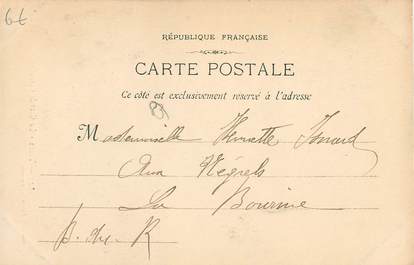 6t
RÉPUBLIQUE FRANÇAISE
CARTE POSTALE
Ce côté est exclusivement réservé à l'adresse
Mademoiselle Henriette
Aux Négrels
La Bourine
B. du. R